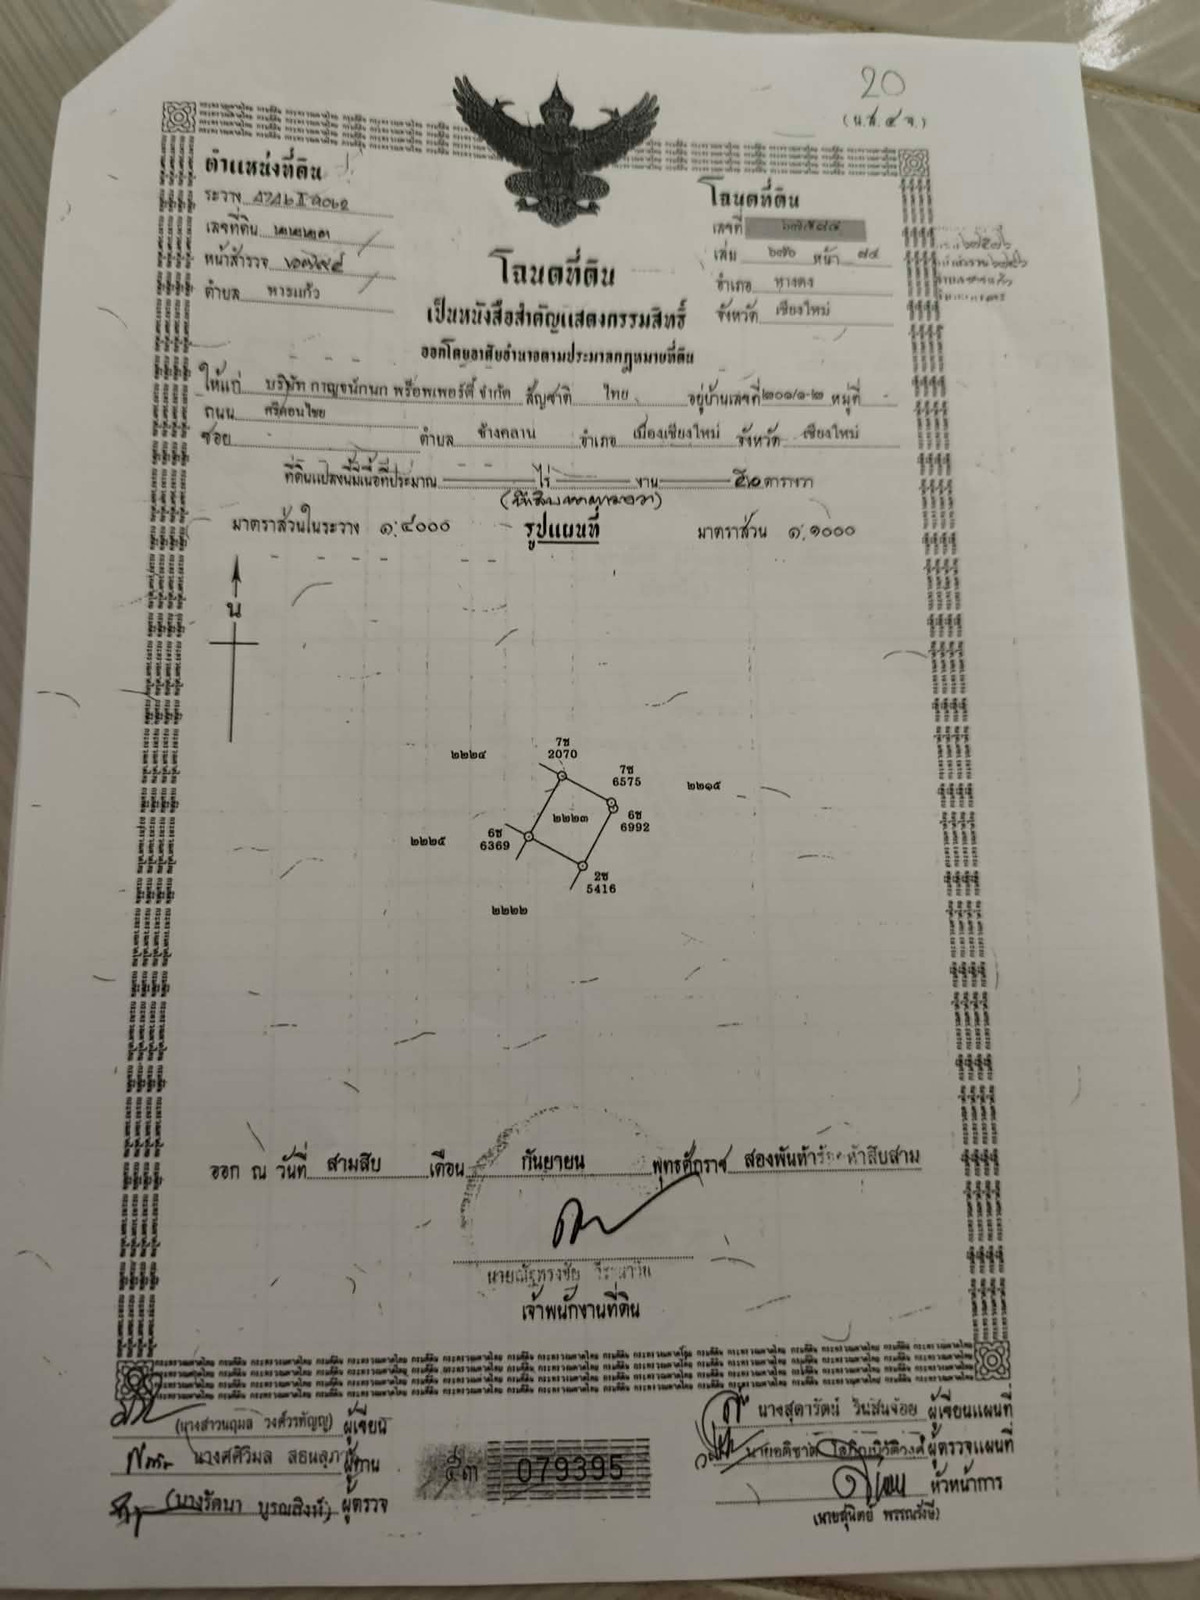 20
(น.ส.๔ จ.)
ตำแหน่งที่ดิน
ระวาง
เลขที่ดิน ๒๒๒๓
หน้าสำรวจ
ตำบล หารแก้ว
โฉนดที่ดิน
เลขที่
เล่ม หน้า ๗๔
อำเภอ หางดง
จังหวัด เชียงใหม่
โฉนดที่ดิน
เป็นหนังสือสำคัญแสดงกรรมสิทธิ์
ออกโดยอาศัยอำนาจตามประมวลกฎหมายที่ดิน
ให้แก่ บริษัท กาญจน์กนก พร็อพเพอร์ตี้ จำกัด สัญชาติ ไทย อยู่บ้านเลขที่ ๒๐๑/๑-๒ หมู่ที่ -
ถนน ศรีดอนไชย
ซอย - ตำบล ช้างคลาน อำเภอ เมืองเชียงใหม่ จังหวัด เชียงใหม่
ที่ดินแปลงนี้มีเนื้อที่ประมาณ ไร่ งาน ตารางวา
มาตราส่วนในระวาง ๑:๔๐๐๐ รูปแผนที่ มาตราส่วน ๑:๑๐๐๐
น
7ช
2070
๒๒๒๔
7ช
6575
๒๒๑๕
๒๒๒๓
6ช
6992
6ช
6369
๒๒๒๕
2ช
5416
๒๒๒๒
ออก ณ วันที่ สามสิบ เดือน กันยายน พุทธศักราช สองพันห้าร้อยห้าสิบสาม
เจ้าพนักงานที่ดิน
(นางสาวนฤมล วงศ์วรทัญญู) ผู้เขียน
นางศศิวิมล ผู้ทาน
(นางรัตนา บูรณสิงห์) ผู้ตรวจ
๕๓ 079395
นางสุดารัตน์ ผู้เขียนแผนที่
ผู้ตรวจแผนที่
หัวหน้าการ
(นายสุนิตย์ พรรณรังษี)